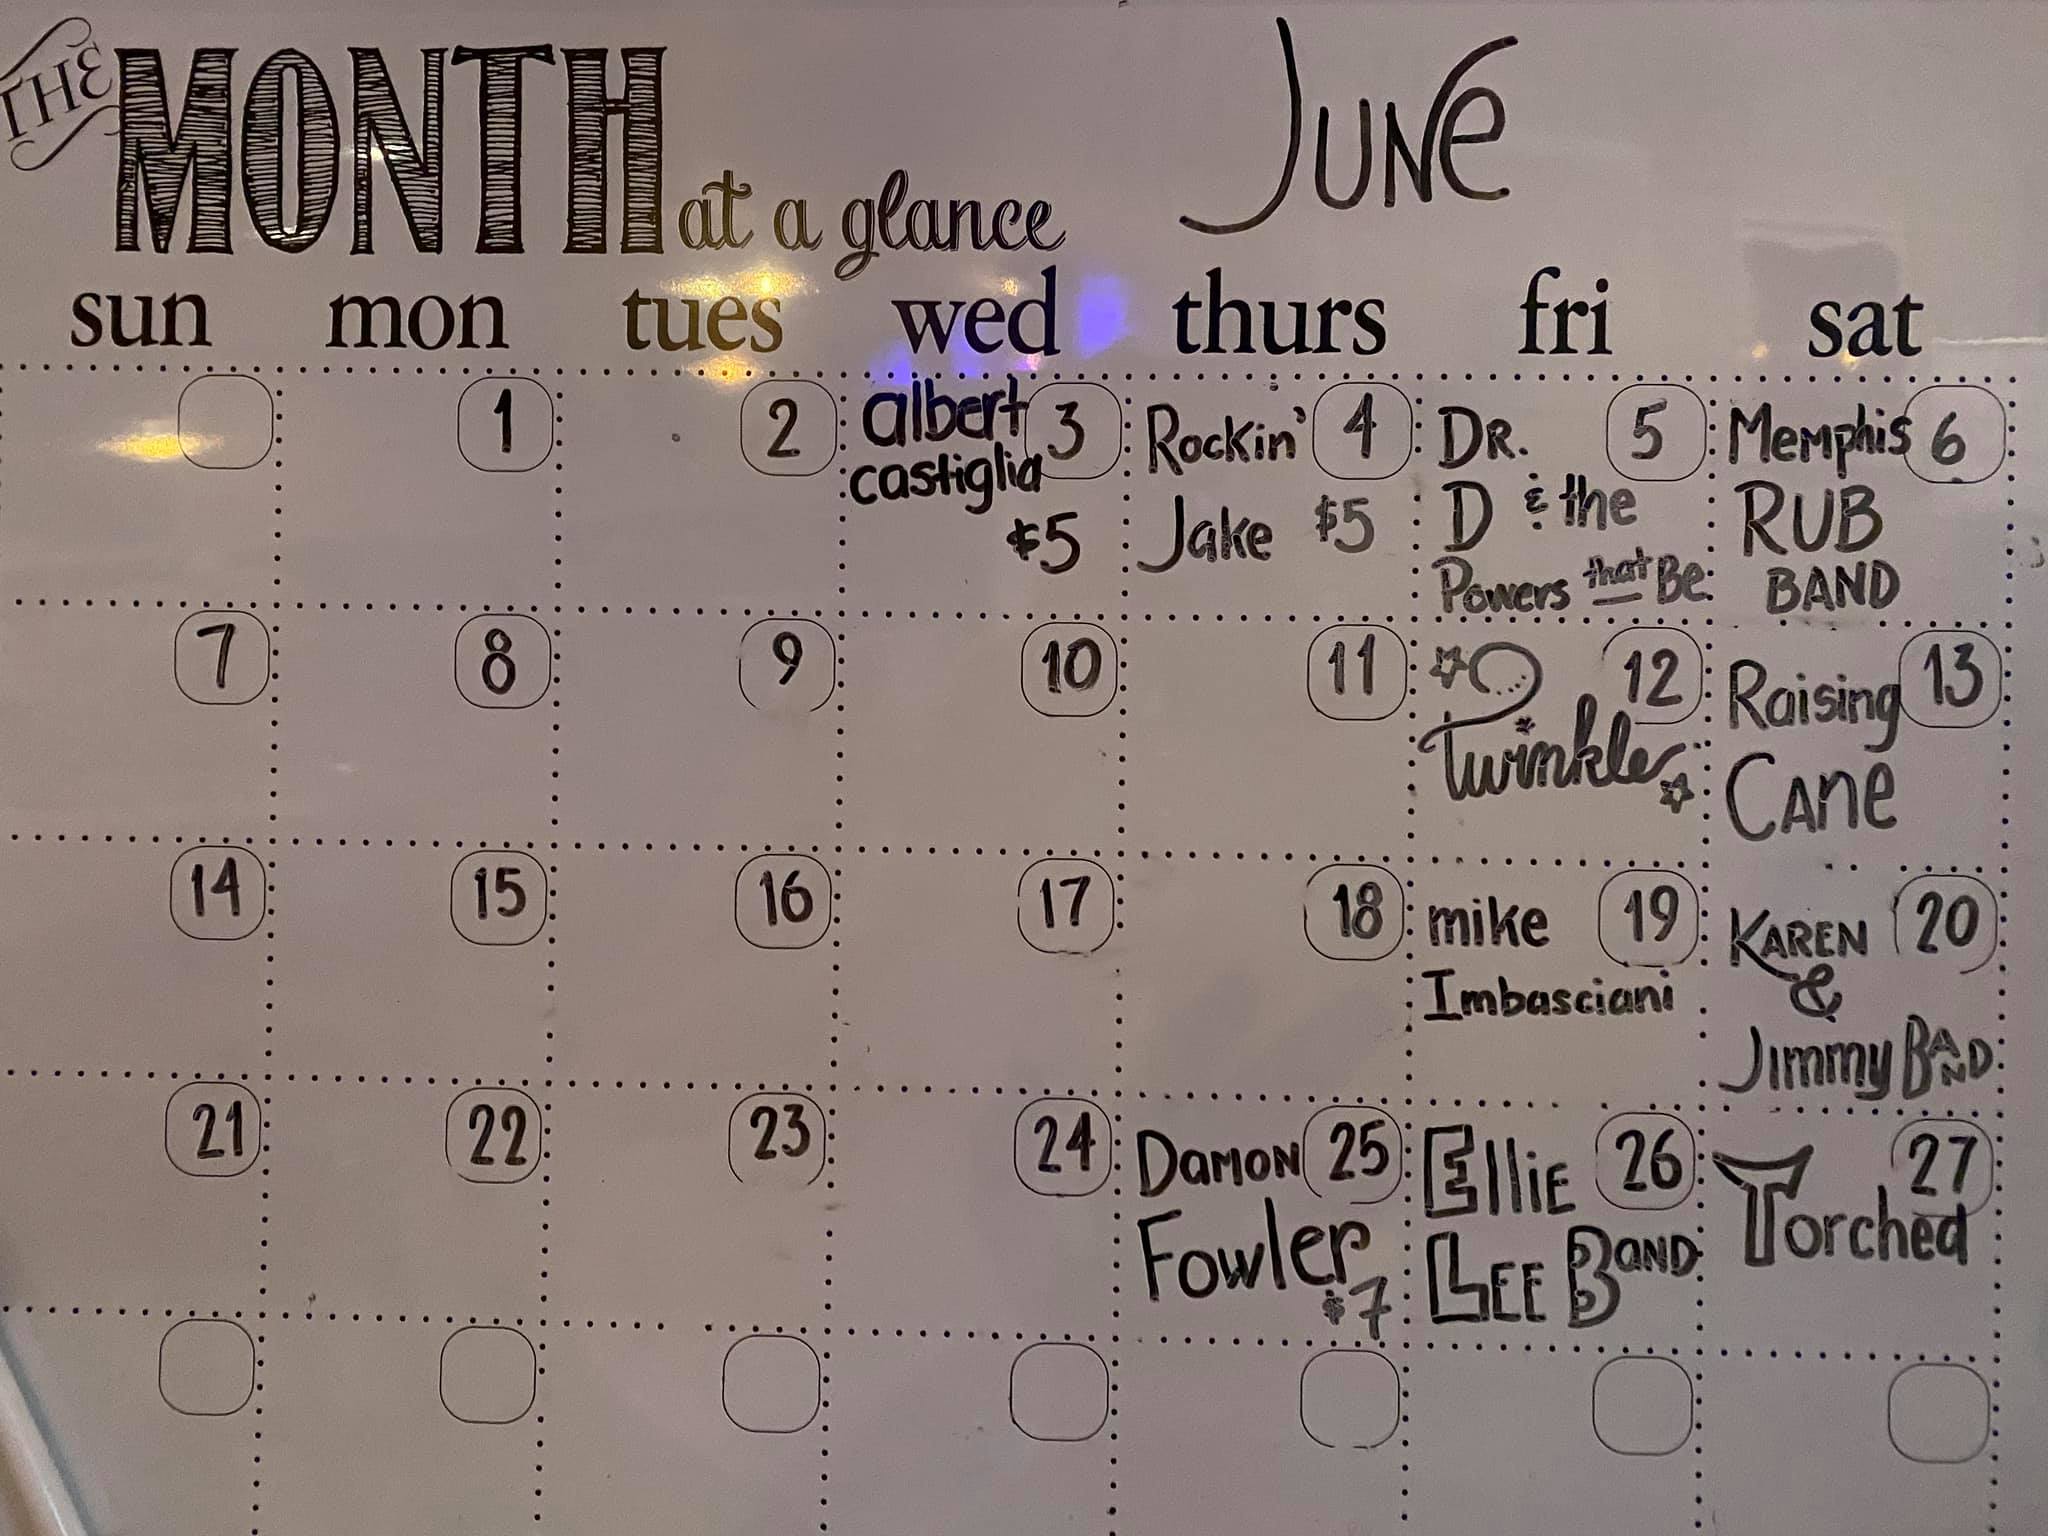 THE MONTH at a glance
JUNE
sun mon tues wed thurs fri sat
1
2
albert 3
castiglia
$5
Rockin' 4
Jake $5
DR. 5
D & the
Powers that Be
Memphis 6
RUB
BAND
7
8
9
10
11
12
Twinkle
Raising 13
Cane
14
15
16
17
18
mike 19
Imbasciani
KAREN 20
&
Jimmy BAND
21
22
23
24
DaMON 25
Fowler
$7
EllIE 26
LEE BAND
27
Torched